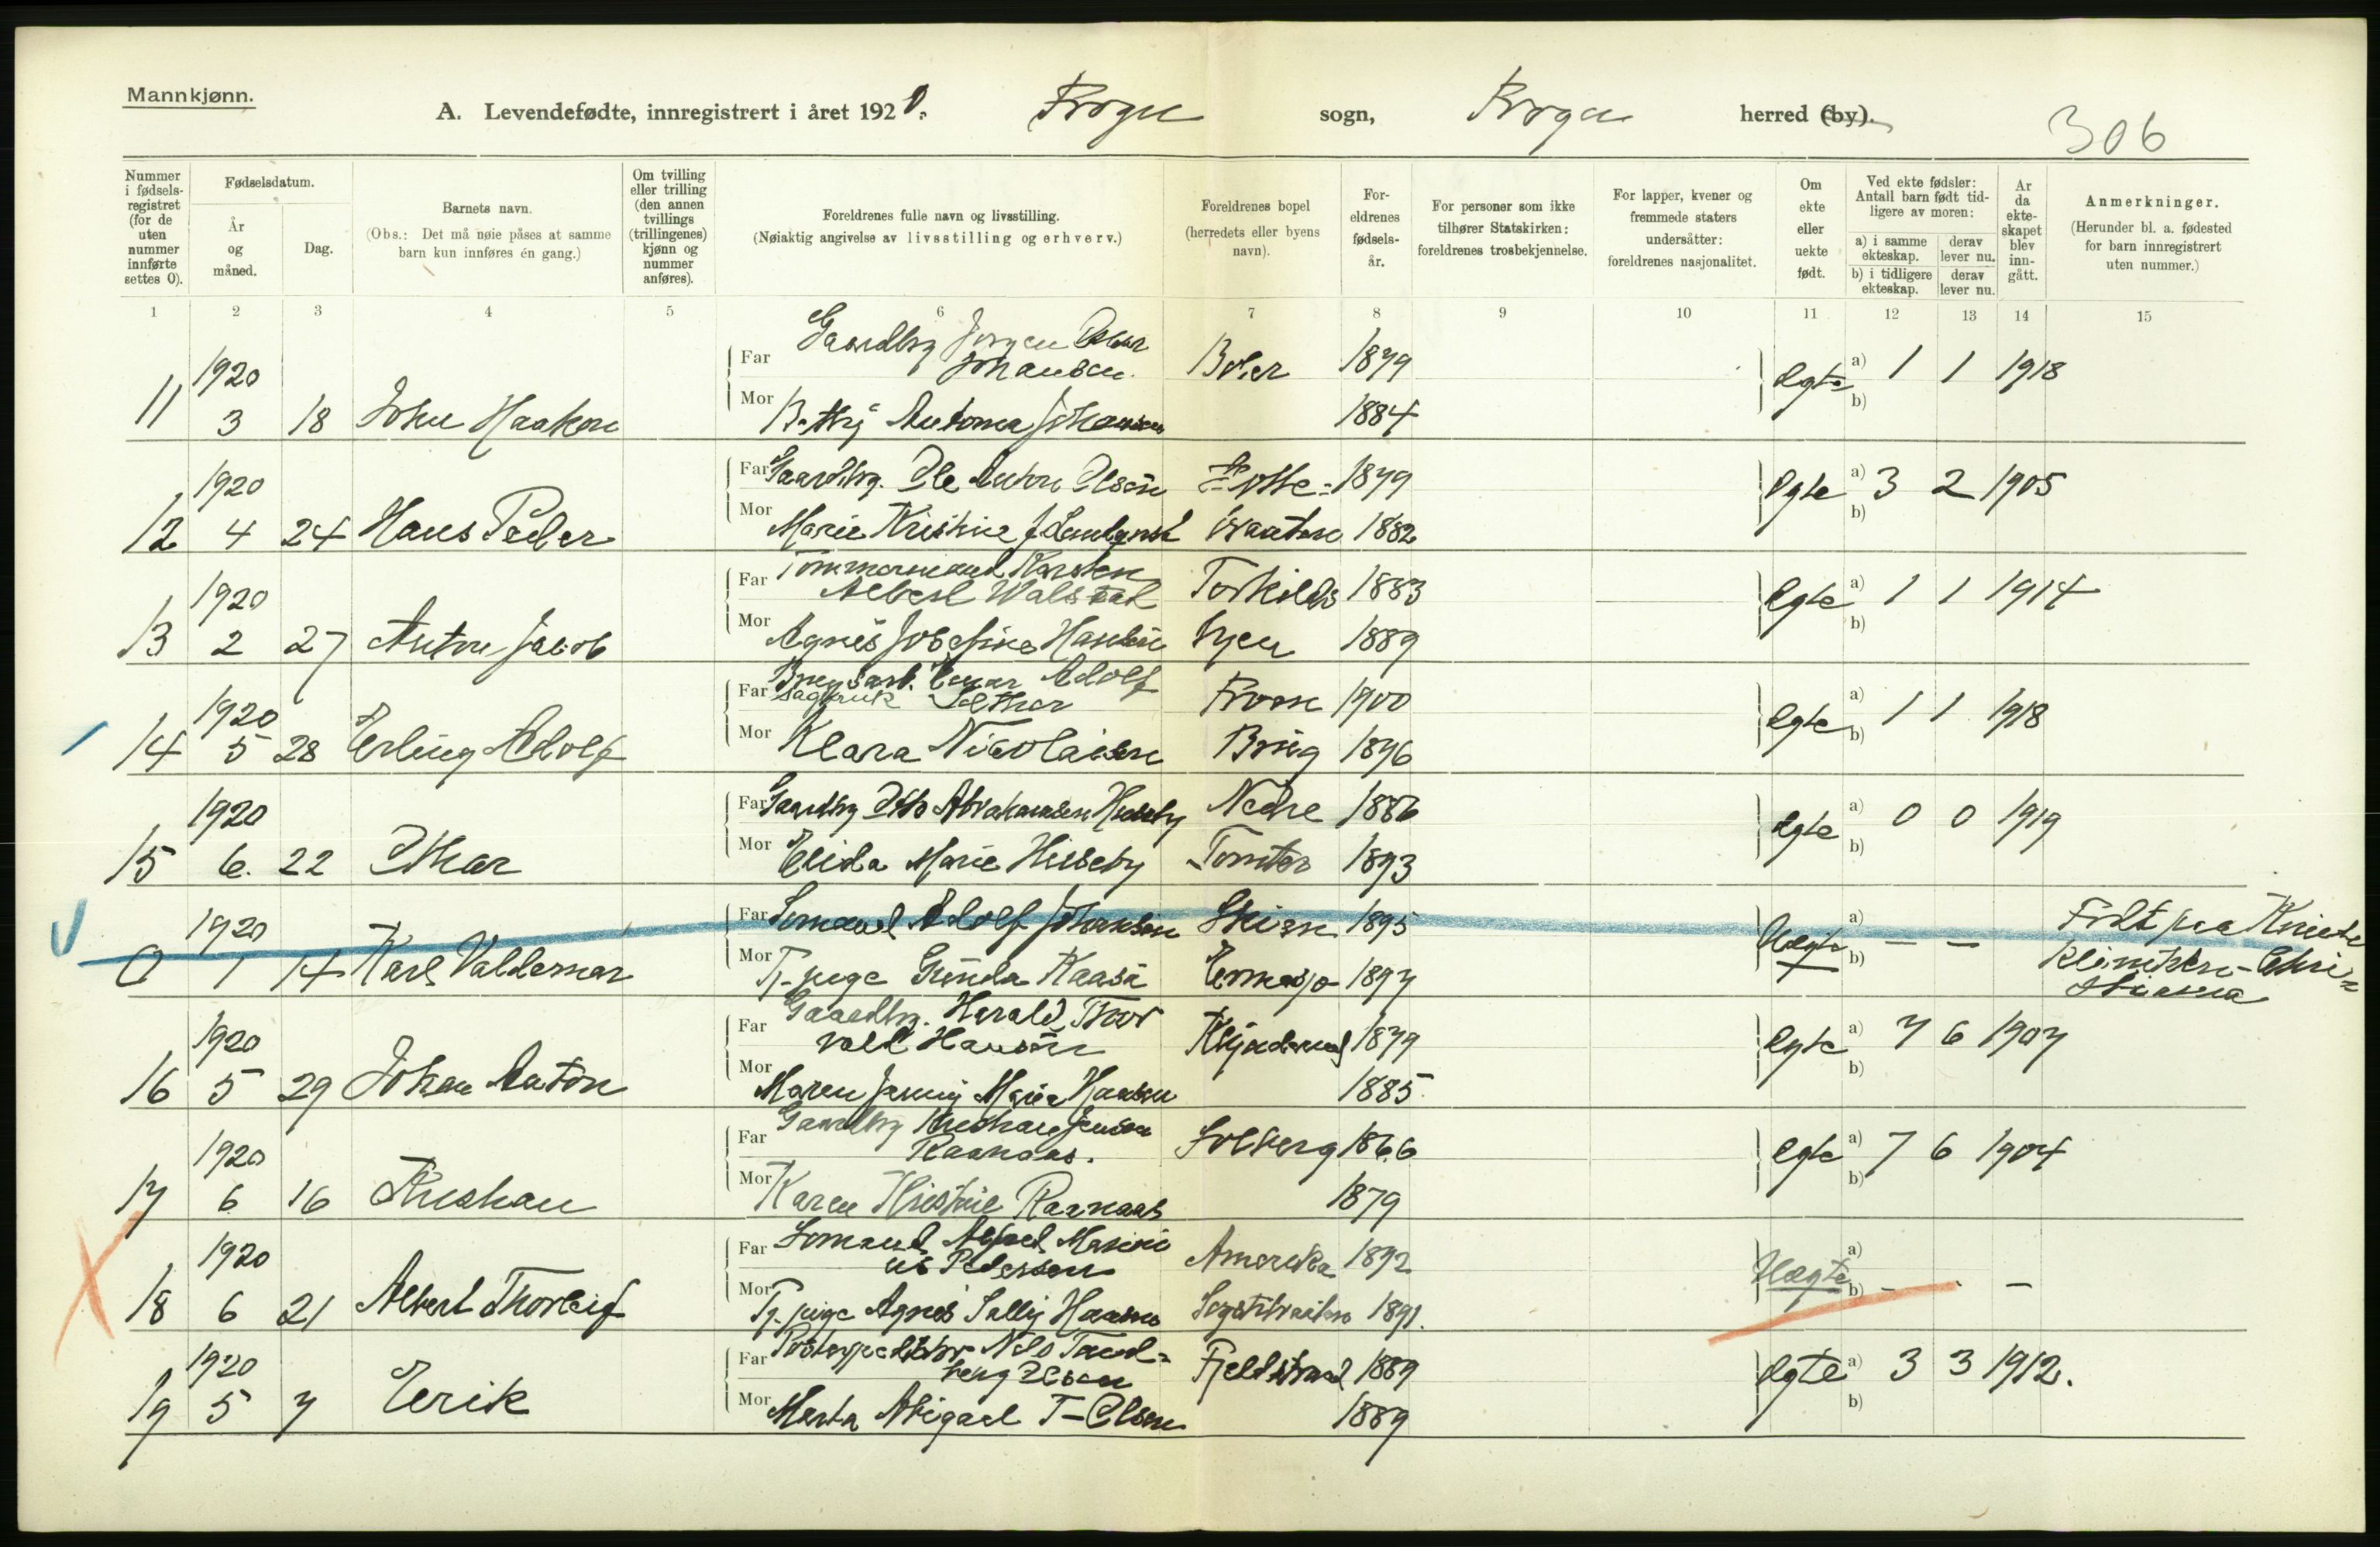 Mannkjønn.
A. Levendefødte, innregistrert i året 1920. Frogn sogn, Frogn herred (by).
306
Nummer i fødsels-registret (for de uten nummer innførte settes 0).
Fødselsdatum.
År og måned.
Dag.
Barnets navn.
(Obs.: Det må nøie påses at samme barn kun innføres én gang.)
Om tvilling eller trilling (den annen tvillings (trillingenes) kjønn og nummer anføres).
Foreldrenes fulle navn og livsstilling.
(Nøiaktig angivelse av livsstilling og erhverv.)
Foreldrenes bopel (herredets eller byens navn).
For-eldrenes fødsels-år.
For personer som ikke tilhører Statskirken: foreldrenes trosbekjennelse.
For lapper, kvener og fremmede staters undersåtter: foreldrenes nasjonalitet.
Om ekte eller uekte født.
Ved ekte fødsler: Antall barn født tid-ligere av moren:
a) i samme ekteskap.
derav lever nu.
b) i tidligere ekteskap.
derav lever nu.
Ar da ekte-skapet blev inn-gått.
Anmerkninger.
(Herunder bl. a. fødested for barn innregistrert uten nummer.)
1 2 3 4 5 6 7 8 9 10 11 12 13 14 15
Far Gaardbr Jørgen Oskar Johansen 1879
11 1920 3 18 John Haakon
Mor Johansen 1884
Egte a) 1 1 1918
b)
Far Gaardbr. Ole Anton Olsen 1879
12 1920 4 24 Hans Peder
Mor Marie Kristine 1882
Egte a) 3 2 1905
b)
Far Tømmermand Karsten Albert Walstad Torkilds 1883
13 1920 2 27 Anton Jacob
Mor Agnes Josefine Hansen 1889
Egte a) 1 1 1914
b)
Far Brugsarb. Einar Adolf 1900
sagbruk
14 1920 5 28 Erling Adolf
Mor Klara Nicolaisen Brug 1896
Egte a) 1 1 1918
b)
Far Gaardbr Otto Abrahamsen Huseby Nedre 1886
15 1920 6. 22 Othar
Mor Elida Marie Huseby Tomter 1893
Egte a) 0 0 1919
b)
Far Sømand Adolf Johansen Skien 1895
0 1920 1 14 Karl Valdemar
Mor Tj. pige Gunda Kaasa 1897
Uegte a) — —
b)
Født paa Kvinde
Klinikken - Chri=
stiania
Far Gaardbr. Harald Thor
vald Hansen 1879
16 1920 5 29 Johan Anton
Mor Maren Jenny Marie Hansen 1885
Egte a) 7 6 1907
b)
Far Gaardbr Kristian Jensen
Raanaas. Solberg 1866
17 1920 6 16 Kristian
Mor Karen Kristine Raanaas 1879
Egte a) 7 6 1904
b)
Far Sømand Alfred Marini
us Pedersen Amerika 1892
18 1920 6 21 Albert Thorleif
Mor Tj. pige Agnes Sally Hansen 1891.
Uegte a)
b) — —
Far Postexpeditør Nils Tand=
berg Olsen Fjeldstrand 1889
19 1920 5 7 Erik
Mor Marta Abigael T-Olsen 1889
Egte a) 3 3 1912.
b)